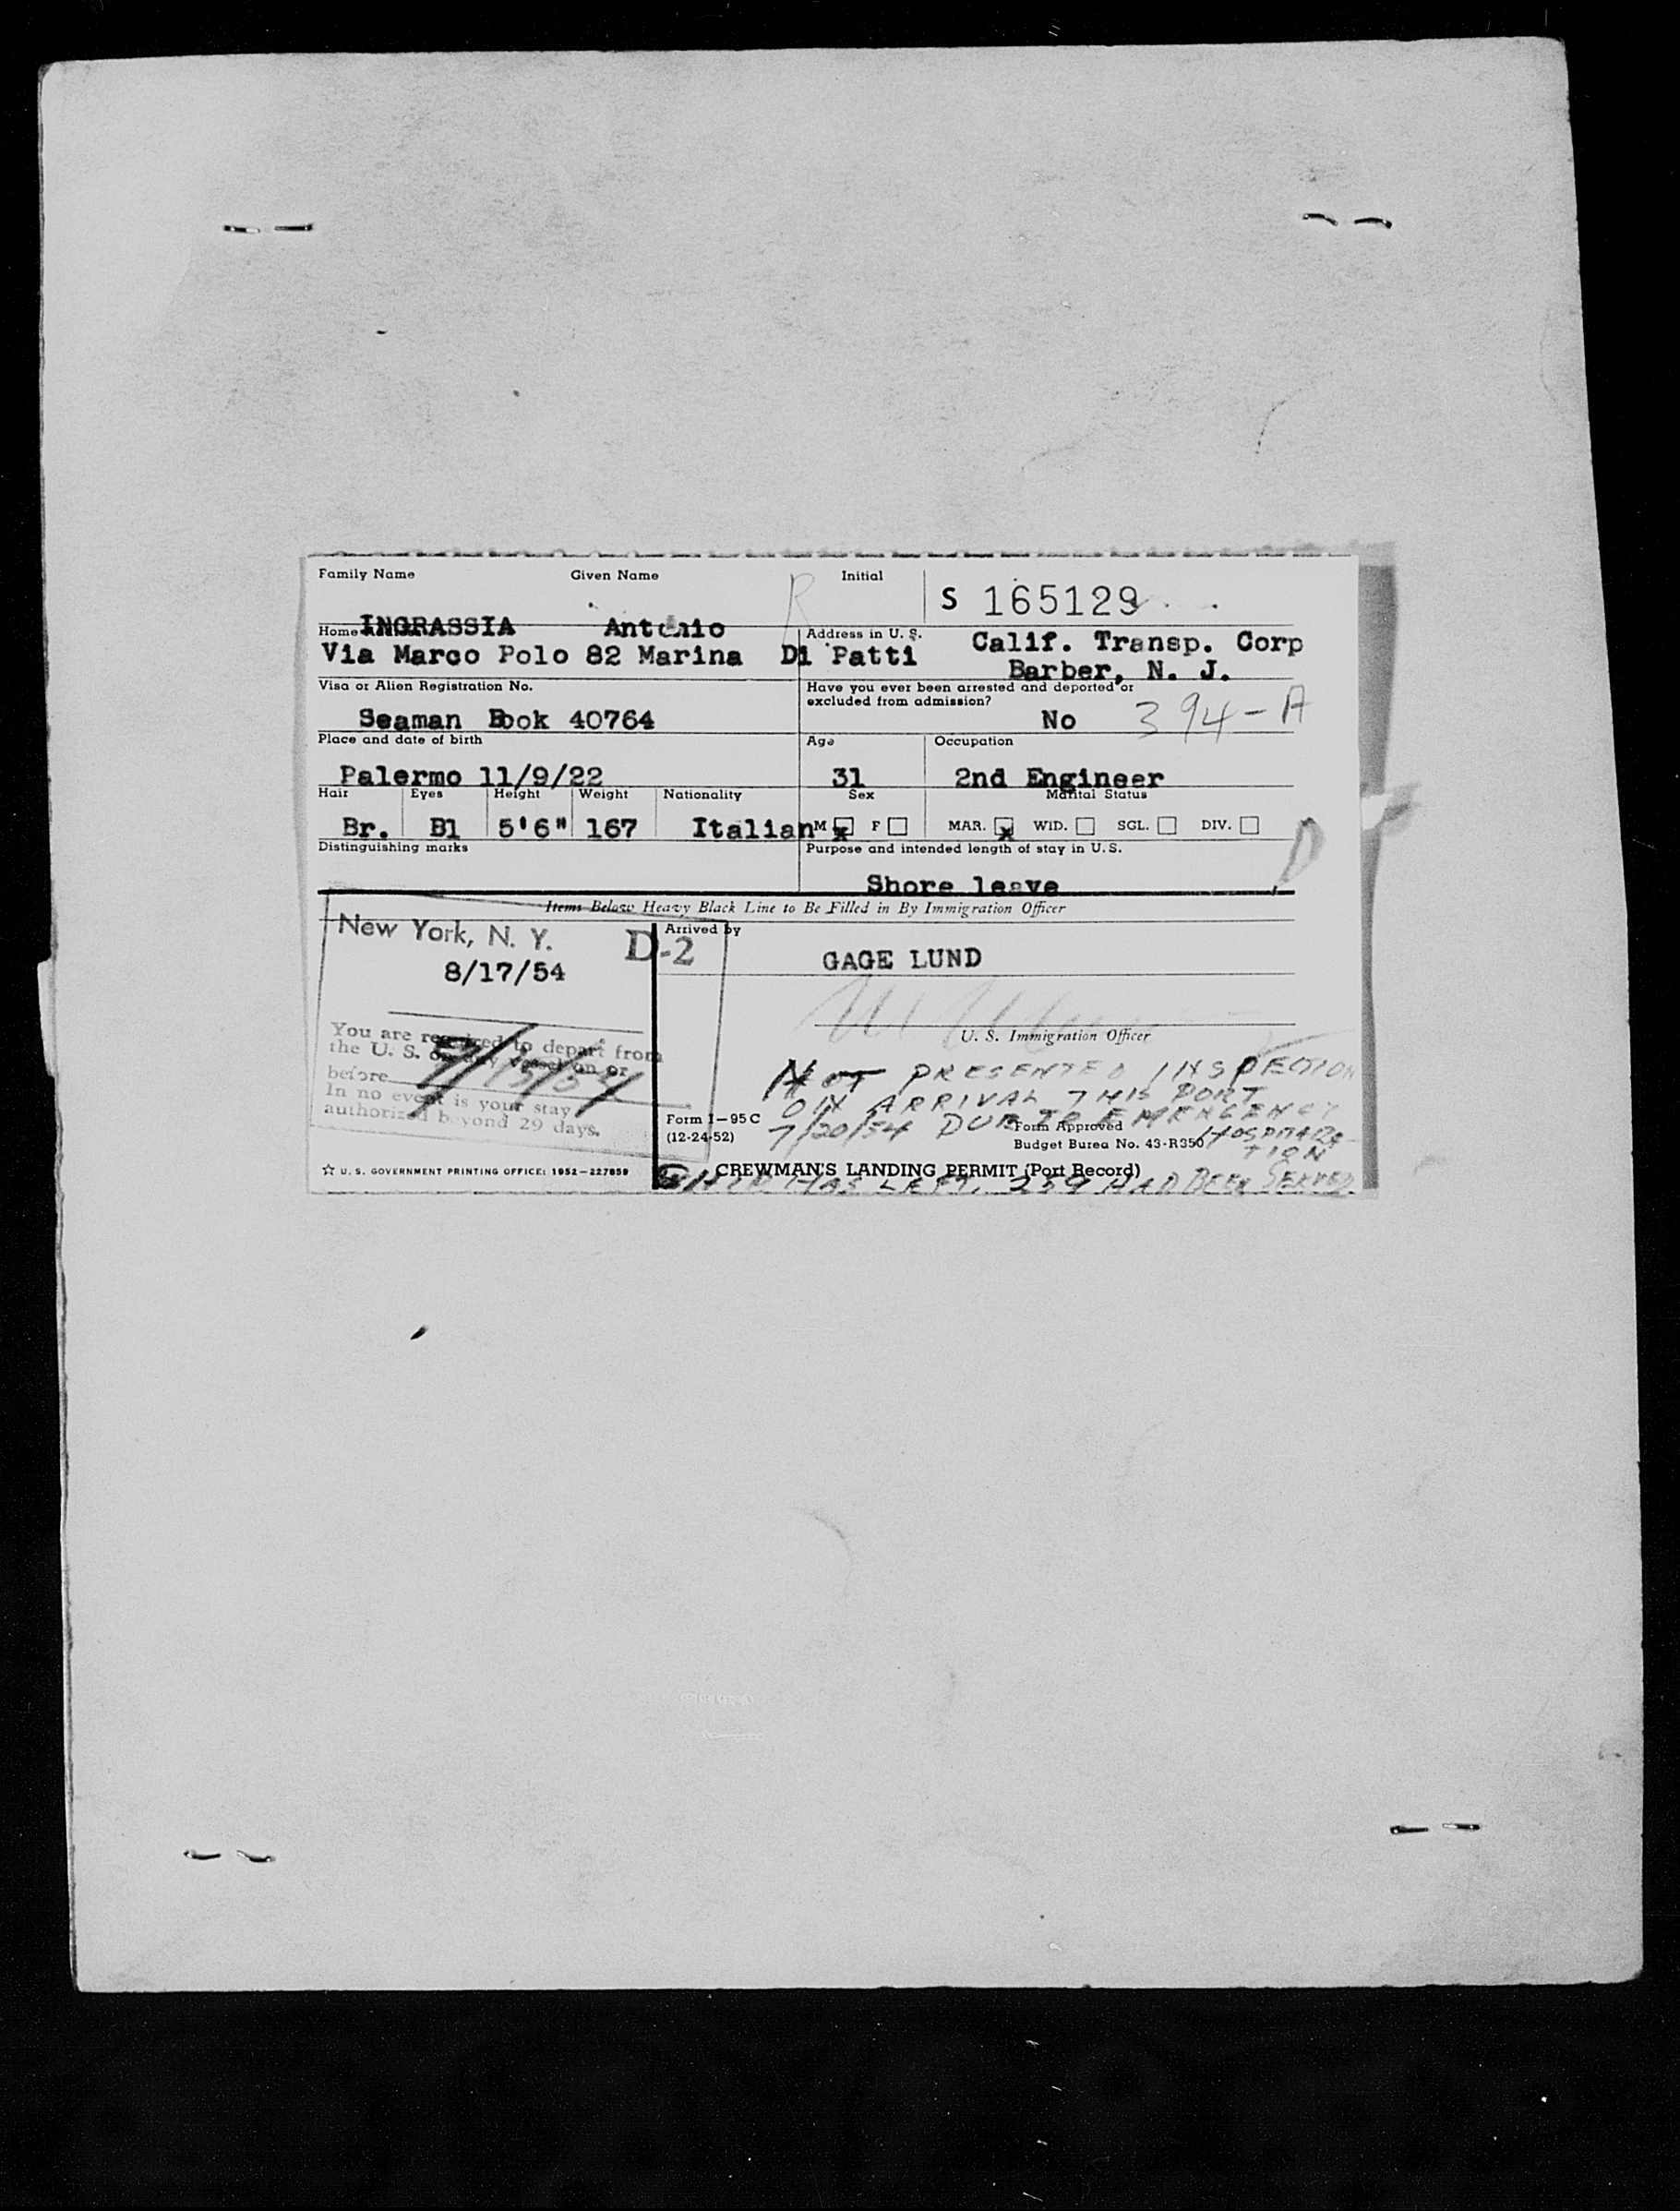 Family Name Given Name Initial
S 165129
INGRASSIA Antonio R
Home Address in U. S. Calif. Transp. Corp
Via Marco Polo 82 Marina Di Patti Barber, N. J.
Visa or Alien Registration No. Have you ever been arrested and deported or
excluded from admission?
Seaman Book 40764 No 394-A
Place and date of birth Age Occupation
Palermo 11/9/22 31 2nd Engineer
Hair Eyes Height Weight Nationality Sex Marital Status
Br. Bl 5'6" 167 Italian M x F MAR. x WID. SGL. DIV.
Distinguishing marks Purpose and intended length of stay in U.S.
Shore leave
D
Items Below Heavy Black Line to Be Filled in By Immigration Officer
New York, N. Y. D-2 Arrived by
8/17/54 GAGE LUND
U. S. Immigration Officer
You are required to depart from
the U. S. on any vessel on or
before 9/15/54
In no event is your stay
authorized beyond 29 days.
NOT PRESENTED INSPECTION
ON ARRIVAL THIS PORT
7/20/54 DUE TO EMERGENCY
HOSPITALIZATION
Form I-95C
(12-24-52)
Form Approved
Budget Burea No. 43-R350
☆ U. S. GOVERNMENT PRINTING OFFICE: 1952-227859
CREWMAN'S LANDING PERMIT (Port Record)
HAS LEFT. 259 HAD BEEN SERVED